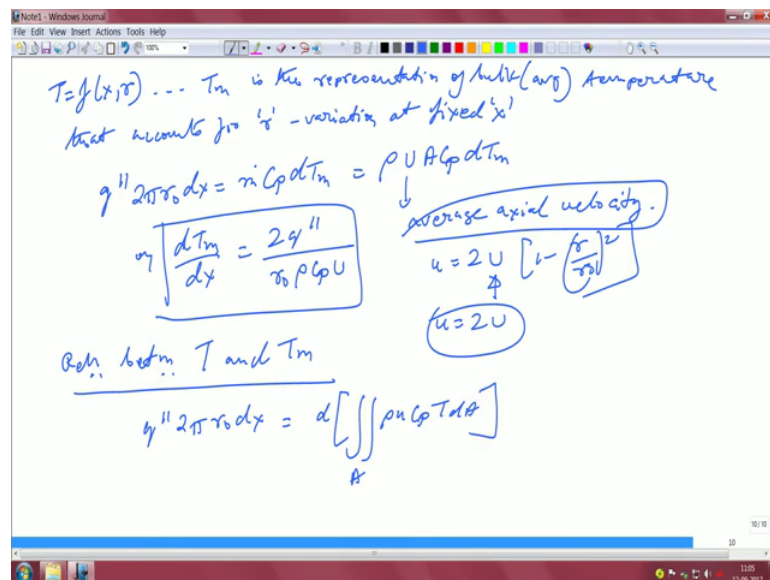 Note1 - Windows Journal
File Edit View Insert Actions Tools Help
100%
T=f(x,r) ... Tm is the representation of bulk(avg) temperature
that accounts for 'r' - variation at fixed 'x'
q'' 2πr₀dx = ṁ Cp dTm = ρ U A Cp dTm
average axial velocity.
or dTm/dx = 2q''/r₀ρCpU
u = 2U [1-(r/r₀)²]
u = 2U
Reln. betn. T and Tm
q'' 2πr₀dx = d[∬ρuCpTdA]
A
10/10
10
11:05